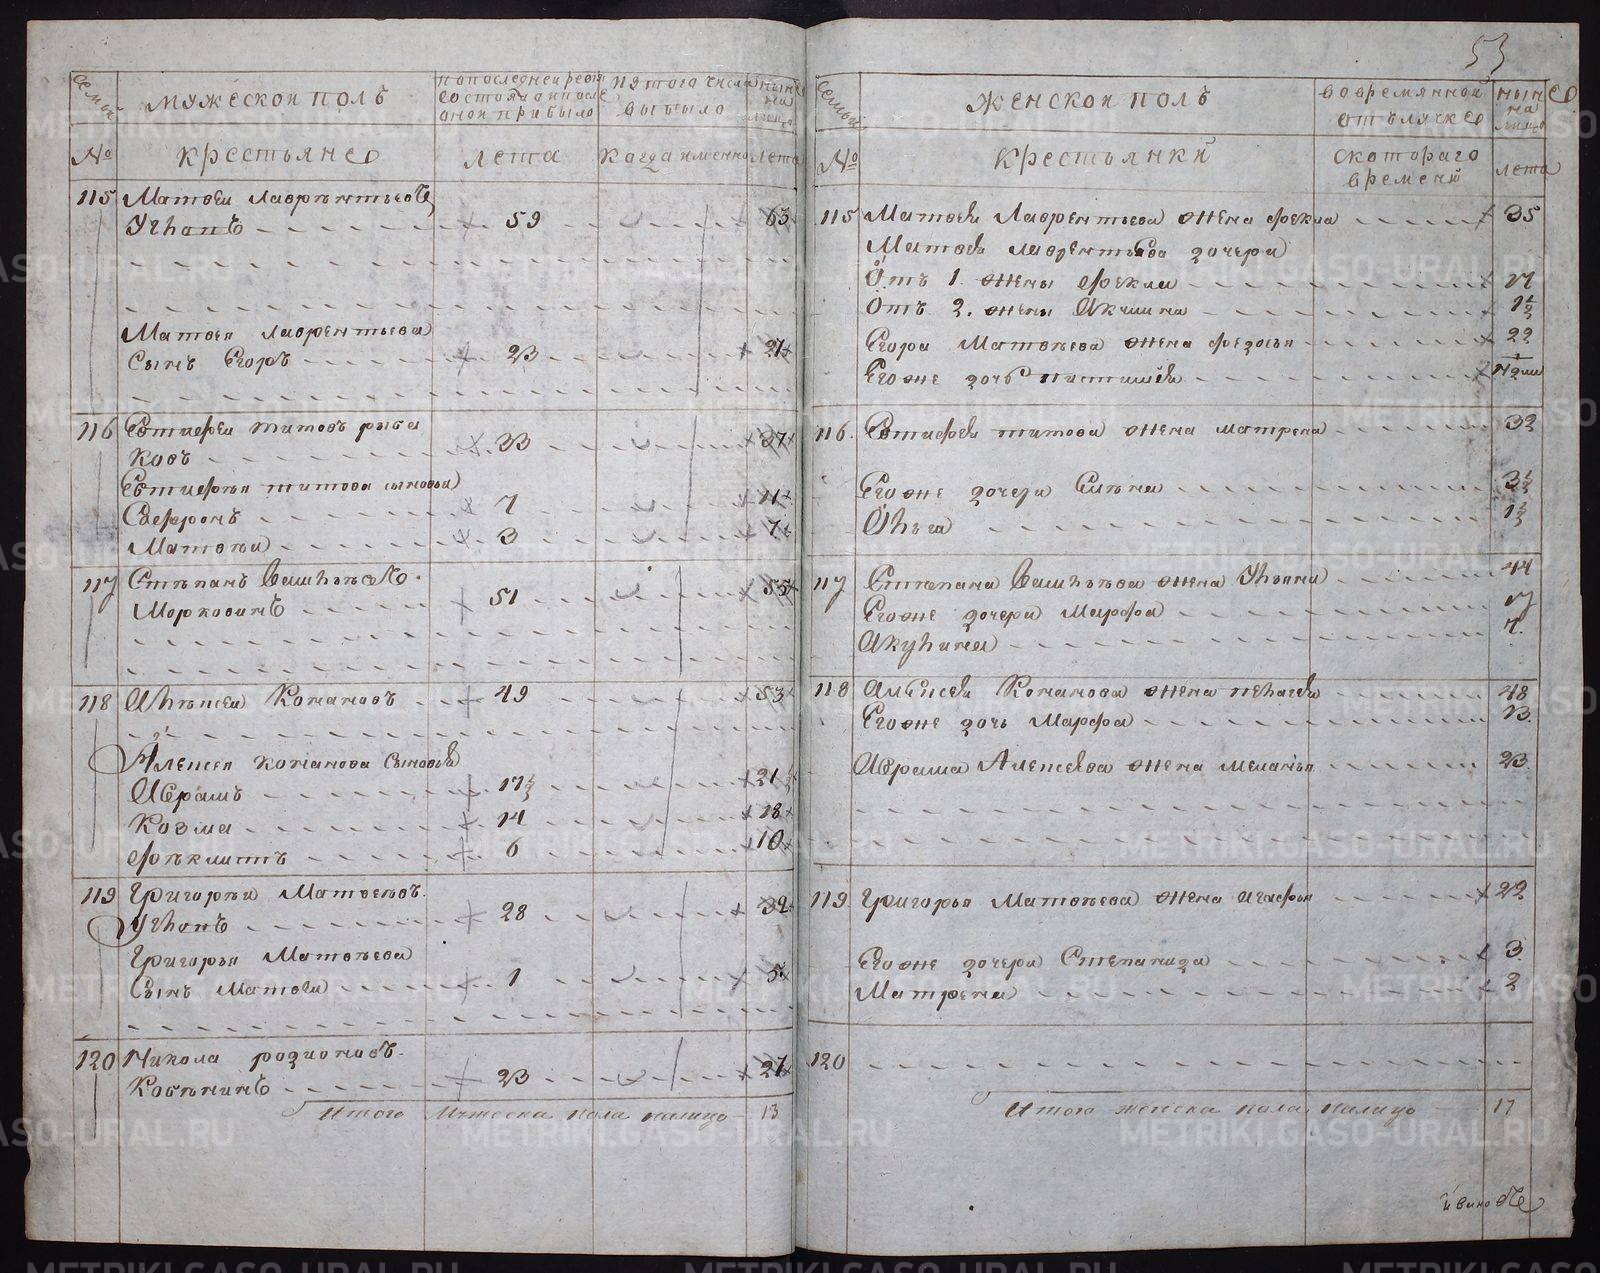 53
Семьи
МУЖЕСКОИ ПОЛЪ
по последней ревизи состояло и после оной прибыло
Из того числа выбыло
ныне на лицо
№
крестьяне
лета
Когда именно
лета
115 Матвеи Лаврѣнтьевъ
59 63
Матвея Лаврентьева
Сынъ Егоръ 23 27
116 Евтиефеи Титовъ рыба
ковъ 33 37
Евтиефья Титова сыновья
Сафронъ 7 11
Матвѣи 3 7
117 Стѣпанъ
Морковинъ 51 55
118 Алѣксеи Кономовъ 49 53
Алексея Кономова Сыновья
Абрамъ 17½ 21½
Козма 14 18
Фѣклистъ 6 10
119 Григорѣи Матвѣевъ
28 32
Григорья Матвѣева
Сынъ Матвеи 1 5
120 Никола родионовъ
23 27
Итого Мужеска пола налицо 13
Семьи
ЖЕНСКОИ ПОЛЪ
во временной отълучке
ныне на лицо
№
Крестьянки
с котораго времени
лета
115 Матвея Лаврентьева жена Фекла 35
Матвея Лаврентьева дочери
Отъ 1. жены Фекла
Отъ 2. жены Акилина 1½
Егора Матвѣева жена Федосья 22
Его же дочь
116. Евтиефея Титова жена матрена 32
Его же дочери Елѣна 3½
Ольга 1½
117 Степана жена Ульяна 44
Его же дочери Марфа
Акулина 7.
118 Алексея Кономова жена пелагея 48
Его же дочь Марфа 13.
Абрама Алексеева жена меланья 23
119. Григорья Матвѣева жена агафья 22
Его же дочери Степанида 3
Матрена 2
120
Итого женска пола налицо 17
METRIKI.GASO-URAL.RU